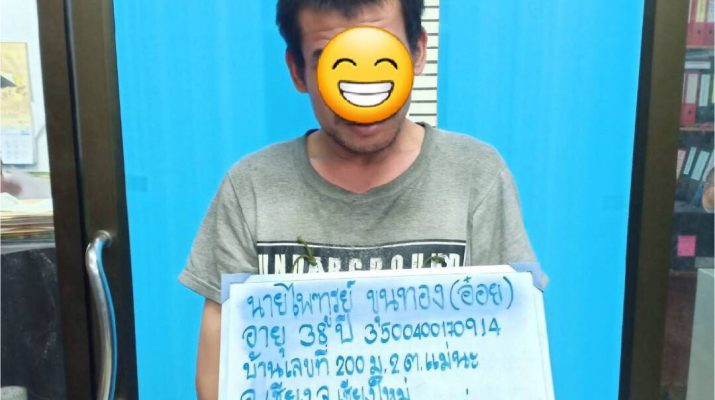 UNDERGROUND
นายไพฑูรย์ ขุนทอง (อ๋อย)
อายุ 38 ปี 3500400170914
บ้านเลขที่ 200 ม.2 ต.แม่นะ